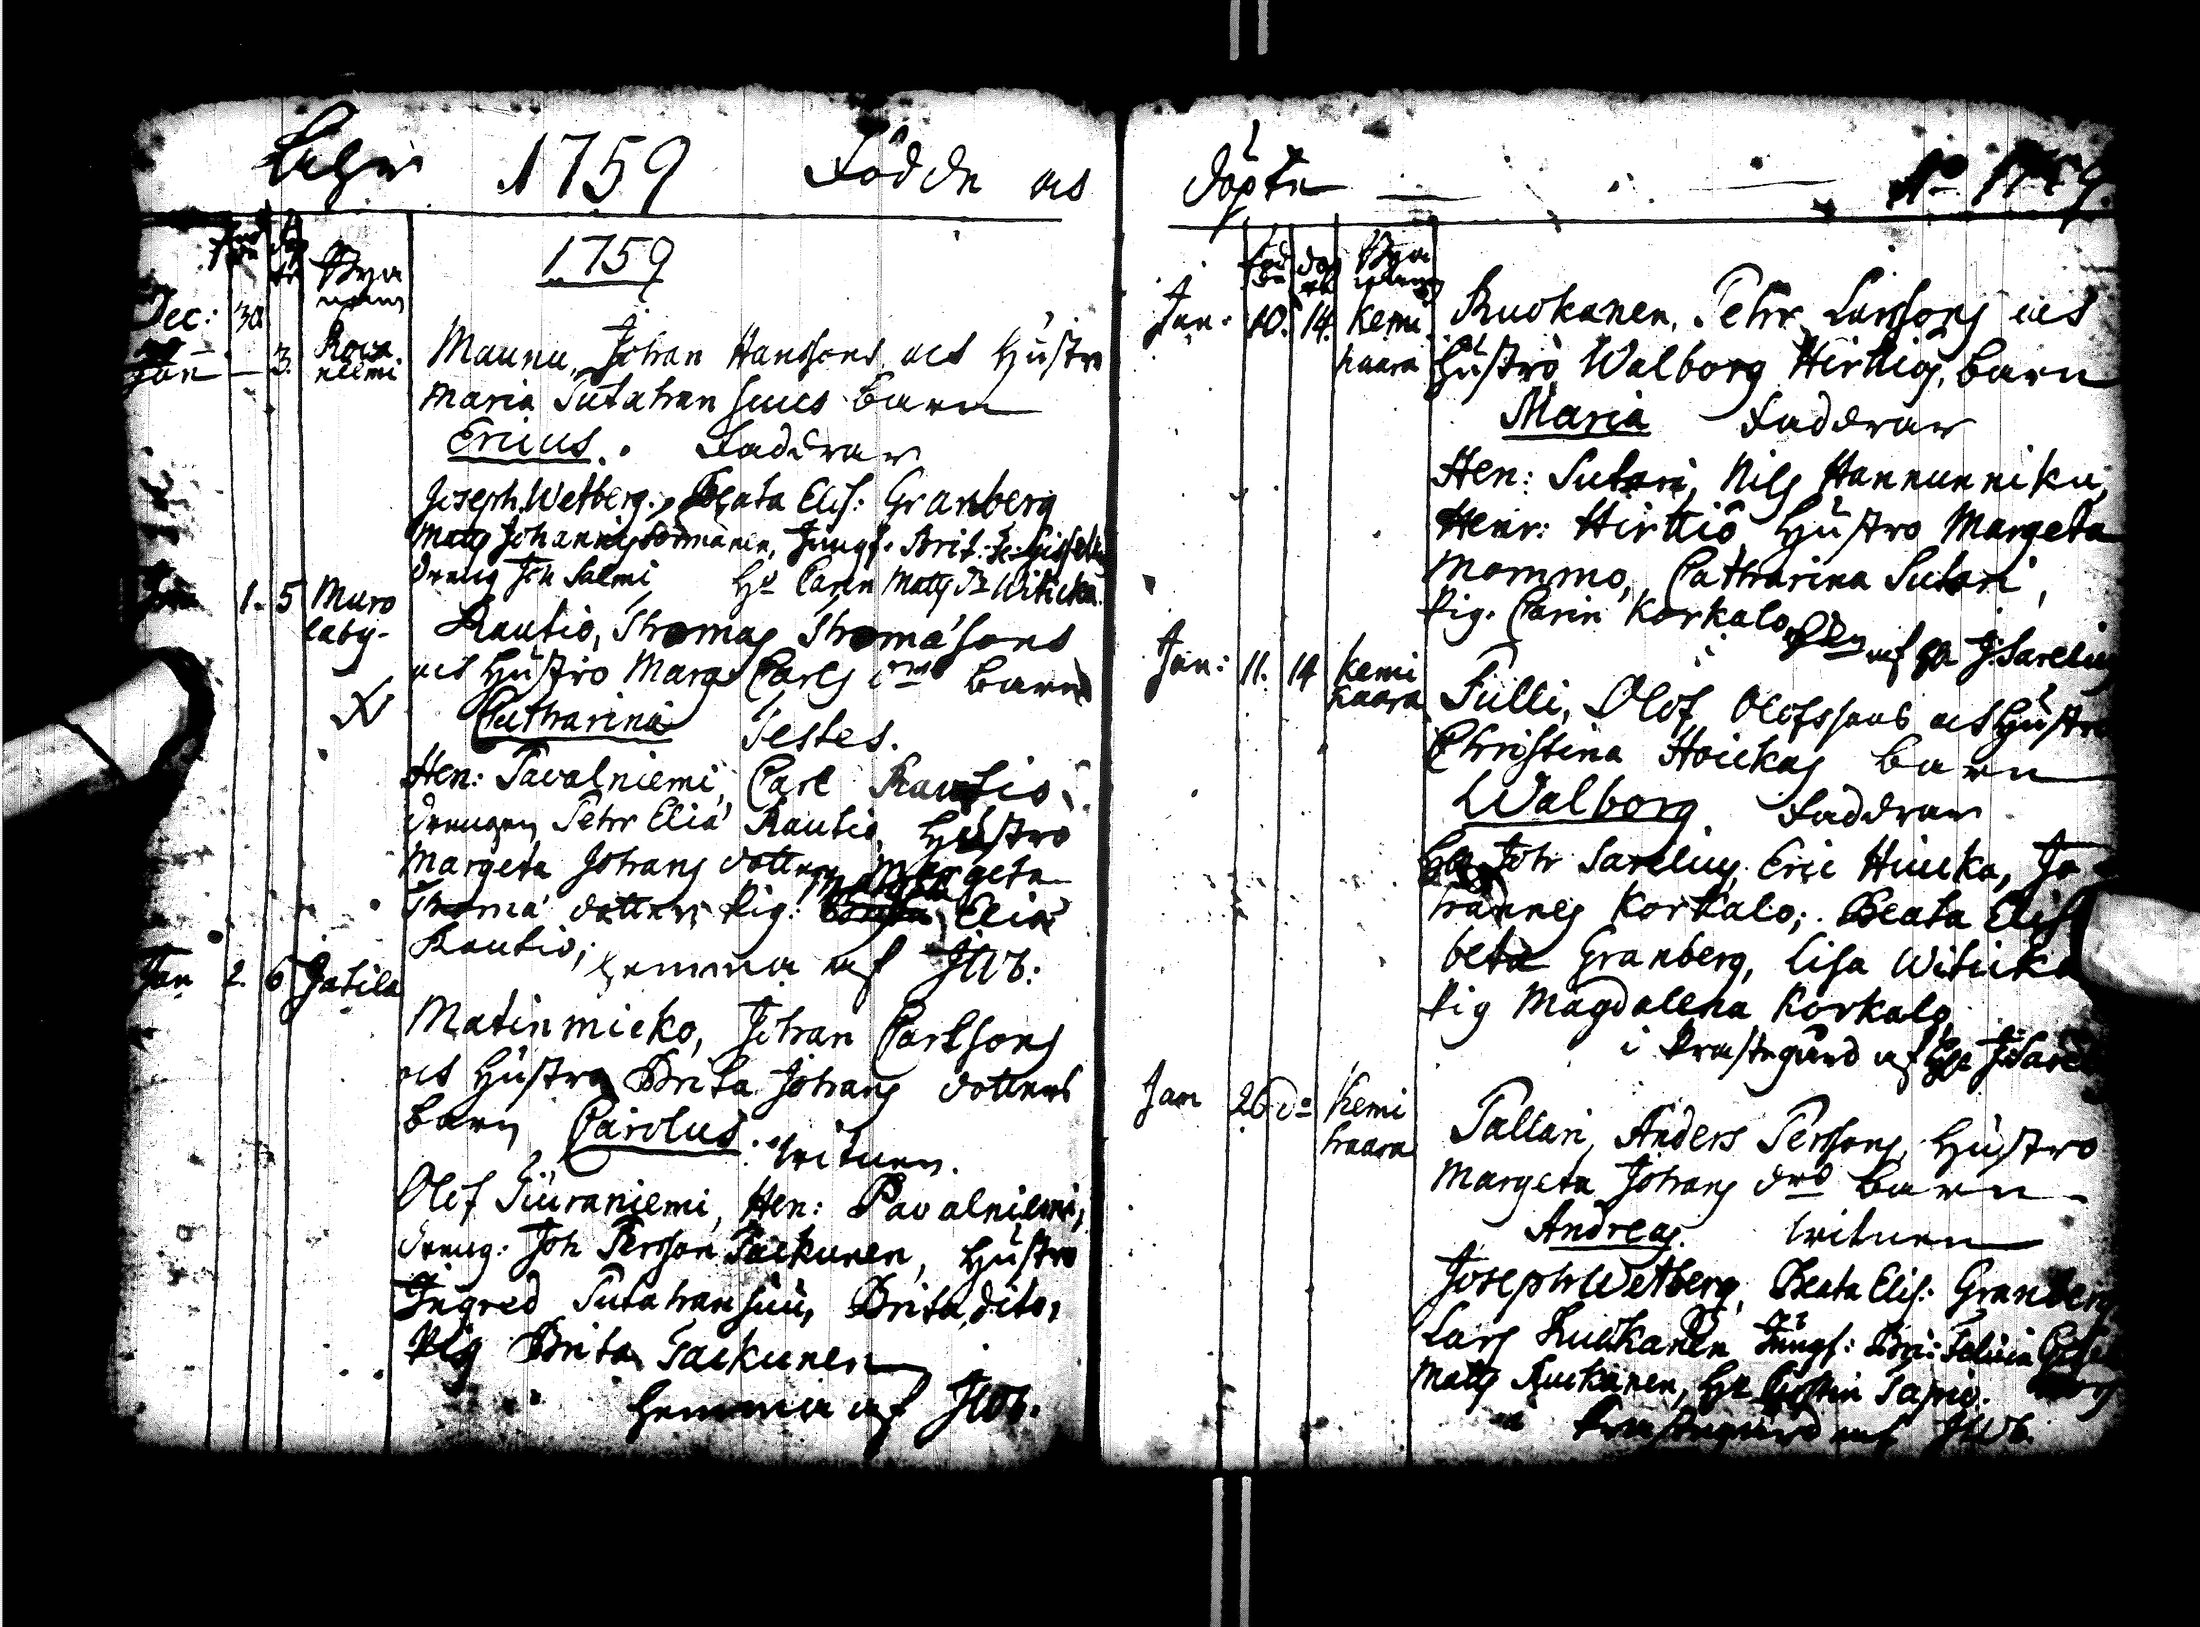 1759 Födde och
1759
Föd
de
döp
te
Bya
namn
Dec: 30
Jan — 3. Rova
niemi
Maunu, Johan Hanssons och Hustro
Maria Putahan suus barn
Ericus. Faddrar
Joseph Wetberg, Beata Elis: Granberg
Matts Johannis Jungf. Brit.
dreng Joh Salmi, Ho Carin Matts dr Witicka.
1. 5 Muro
laby-
Rautio, Thomas Thomæ sons
och Hustro Marg. Carls drs barn
Catharina Testes.
Hen: Pavalniemi, Carl Rautio
drengen Pehr Eliæ Rautio, Hustro
Margeta Johans dotter, Margeta
Thomæ dotter, Pig: Margeta Eliæ
Rautio; hemma af JWb.
Jan 2. 6 Jatila
Matinmicko, Johan Carlsons
och Hustro Brita Johans dotters
barn Carolus. witnen.
Olof Piuraniemi, Hen: Pavalniemi,
dreng: Joh Persson Packunen, Hustro
Ingred Putahansuu, Brita dito,
Pig Brita Packunen
hemma af JWb.
döpte — — Ao 1759.
Föd
de
döp
te
Bya
namn
Jan: 10. 14. Kemi
haara
Ruokanen, Pehr Larssons och
Hustro Walborg Hirttiös, barn
Maria Faddrar
Hen: Sutari, Nils Hannunniku,
Henr: Hirttiö Hustro Margeta
Mommo, Catharina Sutari,
Pig. Carin Korkalo, af Hr J. Sarelius
Jan: 11. 14 Kemi
haara
Pulli, Olof Olofssons och Hustro
Christina Hoickas barn
Walborg Faddrar
Hr Joh Sarelius, Eric Hiucka, Jo-
hannes Korkalo; Beata Elis
beta Granberg, Lisa Witicka
Pig Magdalena Korkalo
i Prästegård af Hr J: Sare
Jan 26 do Kemi
haara
Pallari, Anders Perssons, Hustro
Margeta Johans drs barn
Andreas. witnen
Joseph Wetberg, Beata Elis: Granberg
Lars Ruokanen Jungf: Bri:
Matts Ruokanen, Hr Tapio.
i Prästegård af JWb.